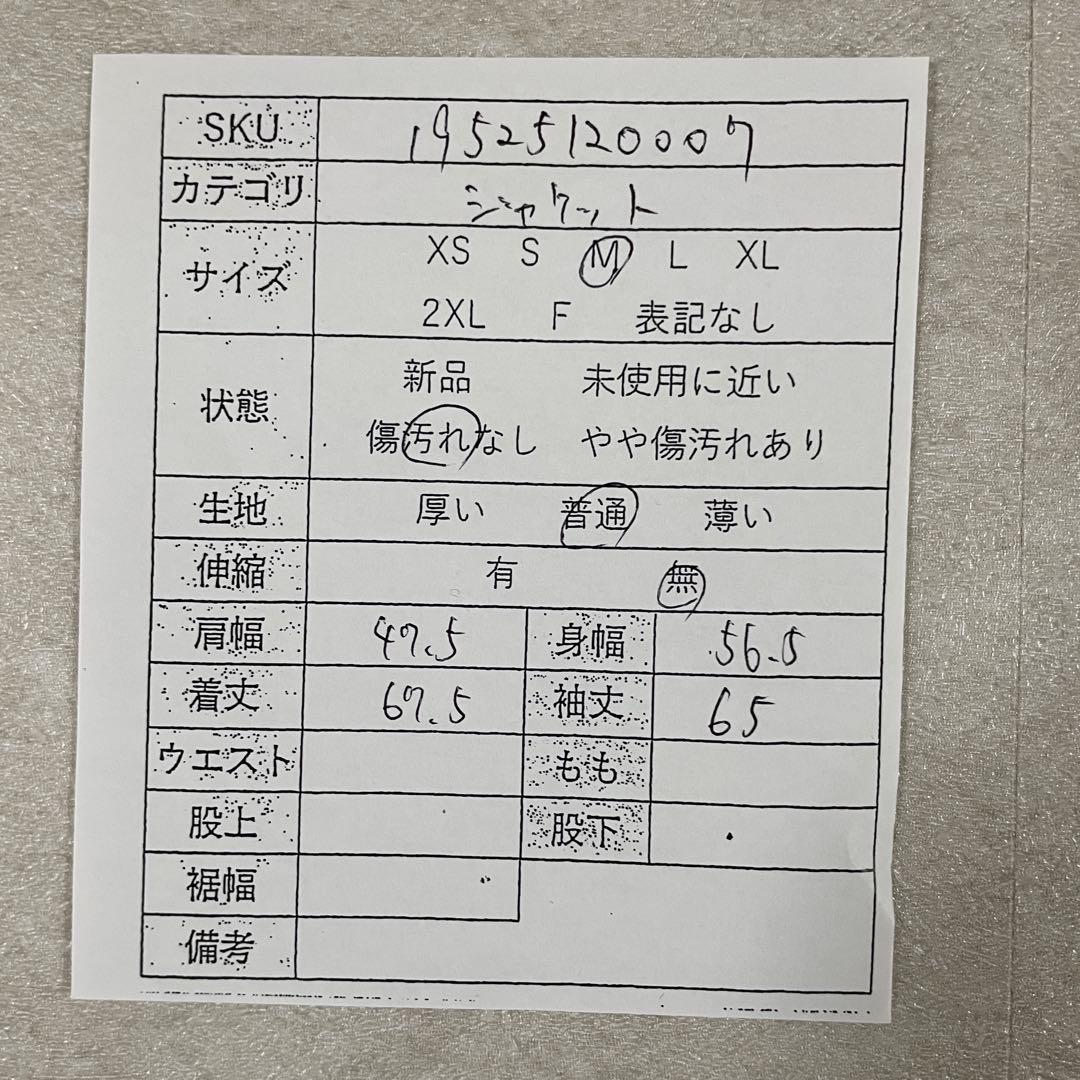 SKU 19525120007
カテゴリ ジャケット
サイズ XS S M L XL
2XL F 表記なし
状態 新品 未使用に近い
傷汚れなし やや傷汚れあり
生地 厚い 普通 薄い
伸縮 有 無
肩幅 47.5 身幅 56.5
着丈 67.5 袖丈 65
ウエスト もも
股上 股下
裾幅
備考